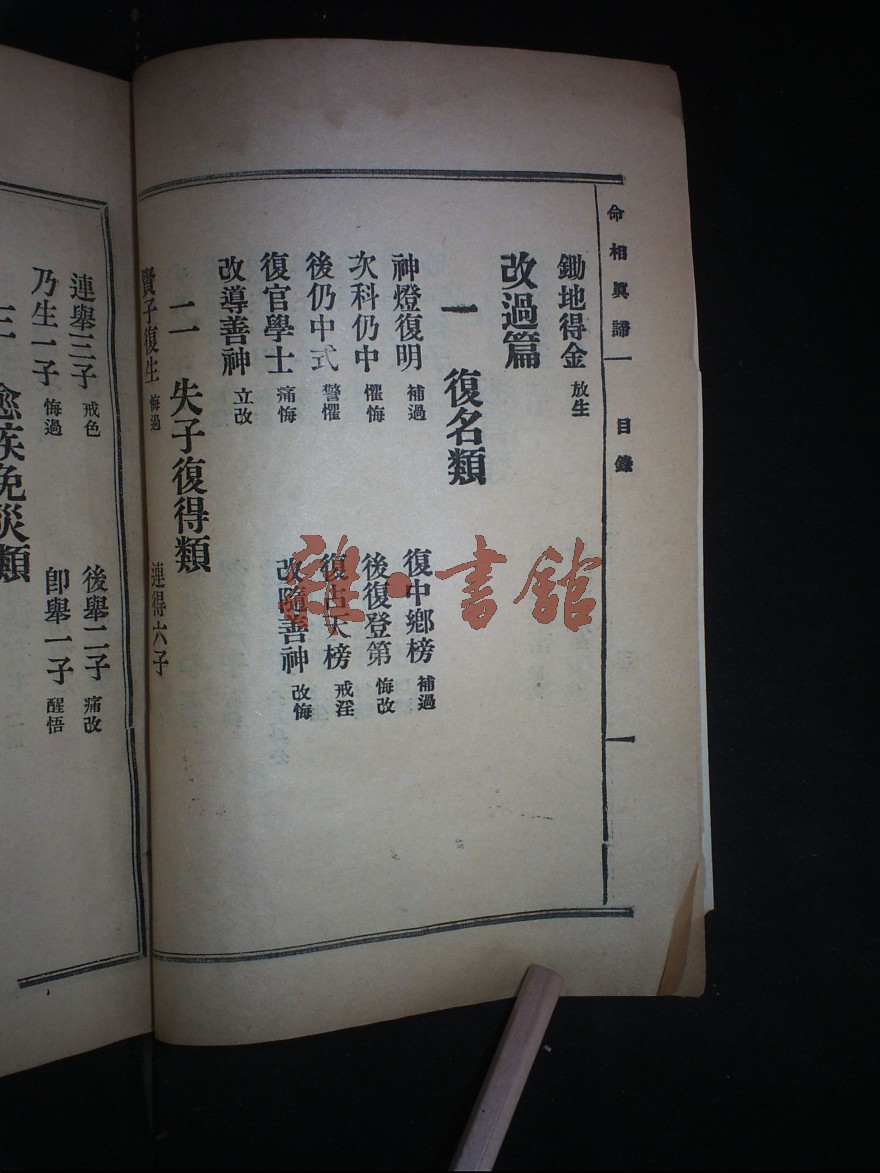 命相興歸 目錄 一
鋤地得金 放生
改過篇
一 復名類
神燈復明 補過 復中鄉榜 補過
次科仍中 懼悔 後復登第 悔改
後仍中式 警懼 復占大榜 戒淫
復官學士 痛悔 改隨善神 改悔
改導善神 立改
二 失子復得類
賢子復生 悔過 連得六子
連舉三子 戒色 後舉二子 痛改
乃生一子 悔過 卽舉一子 醒悟
三 愈疾免災類
雜·書館